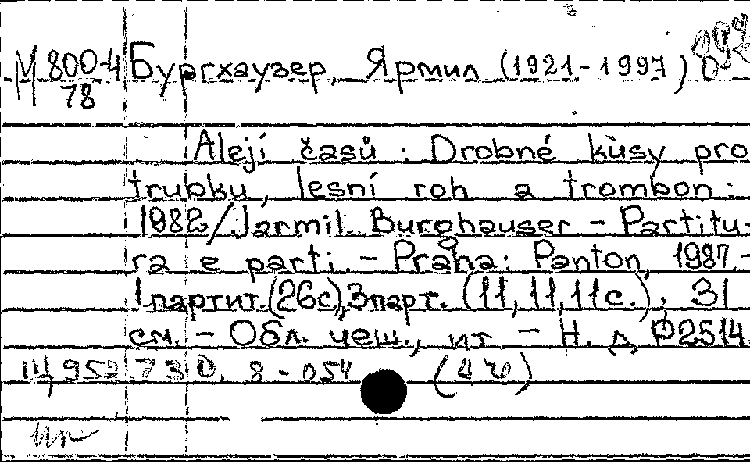 М 800-4 Бургхаузер, Ярмил (1921-1997)
78
Alejí časů : Drobné kusy pro
trubku, lesní roh a trombon :
1982/Jarmil Burghauser - Partitu-
ra e parti. - Praha: Panton, 1987.-
1 партит.(26с), 3 парт. (11,11,11с.); 31
см. - Обл. чеш., ит - Н. д. P2514
8 - 054